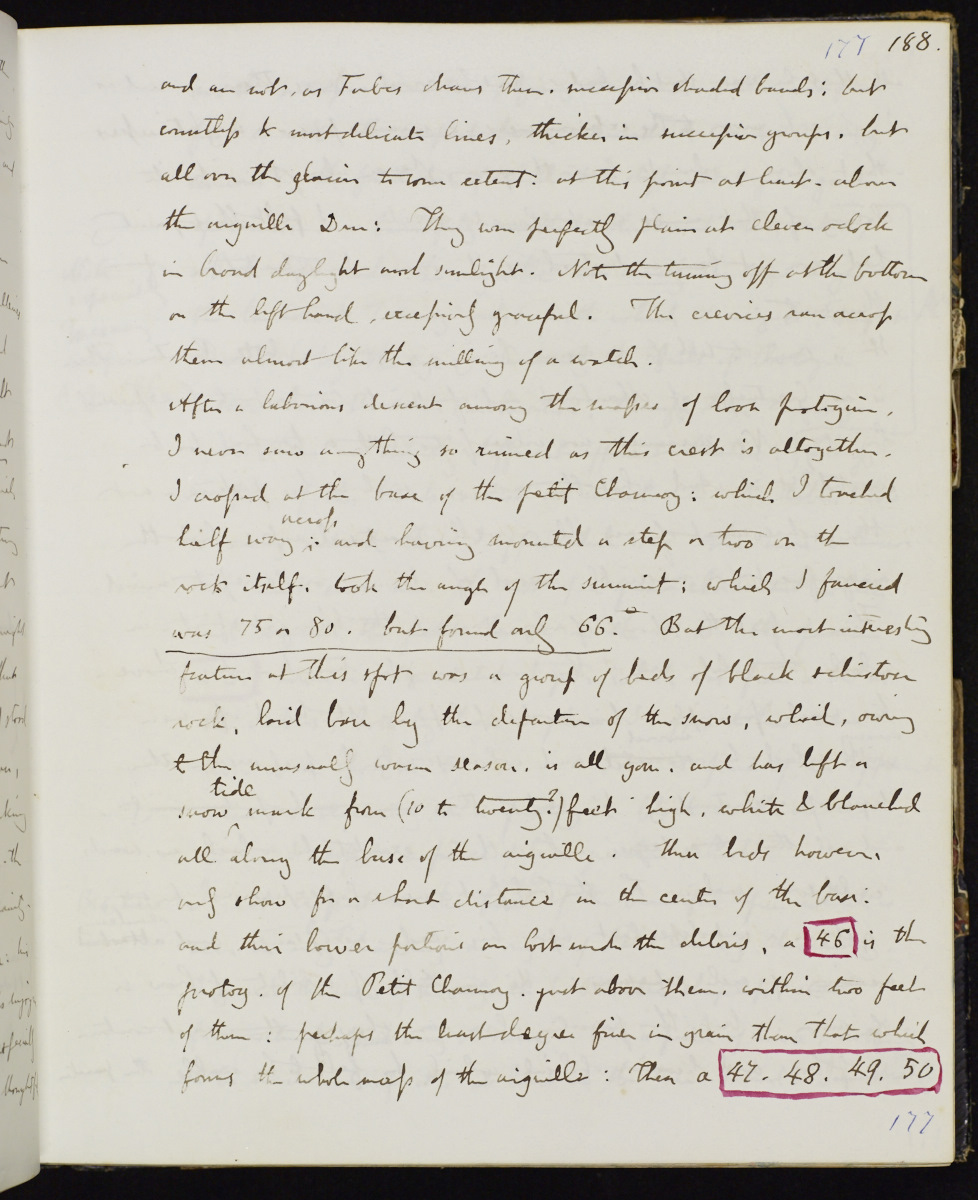 177 188.
and are not, as Forbes draws them, successive shaded bands; but
countless & most delicate lines, thicker in successive groups, but
all over the glacier to some extent: at this point at least - above
the aiguille Dru: They were perfectly plain at eleven oclock
in broad daylight and sunlight. Note the turning off at the bottom
on the left hand, excessively graceful. The crevices ran across
them almost like the milling of a watch.
After a laborious descent among the masses of loose protogine,
I never saw anything so ruined as this crest is altogether.
I crossed at the base of the petit Charmoz: which I touched
across
half way; and having mounted a step or two on the
rock itself, took the angle of the summit; which I fancied
was 75 or 80. but found only 66°. But the most interesting
feature at this spot was a group of beds of black schistose
rock, laid bare by the departure of the snow, which, owing
to the unusually warm season, is all gone, and has left a
tide
snow mark from (10 to twenty?) feet high, white & blanched
all along the base of the aiguille. These beds however,
only show for a short distance in the center of the base:
and their lower portions are lost under the debris, a 46 is the
protog. of the Petit Charmoz. just above them, within two feet
of them: perhaps the least degree finer in grain than that which
forms the whole mass of the aiguille: Then a 47. 48. 49. 50
177